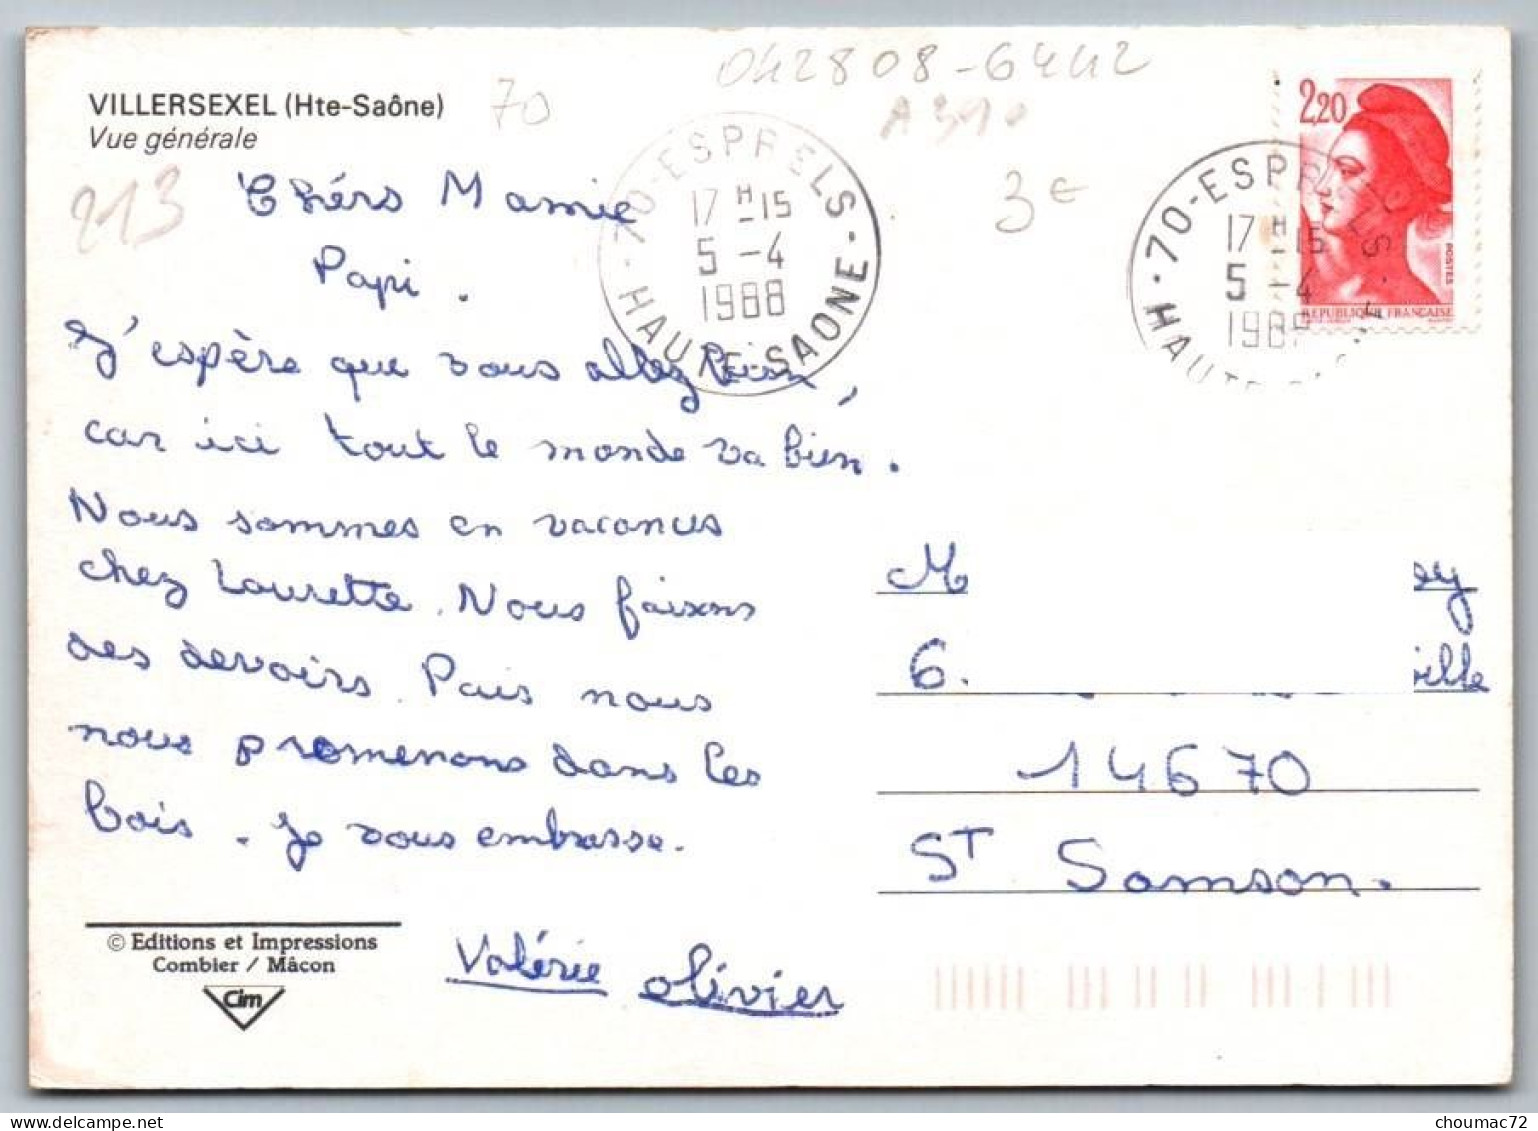 042808-6442
VILLERSEXEL (Hte-Saône)
70
A310
Vue générale
213
3€
Chérs Mamie
Papi.
J'espère que vous allez bien,
car ici tout le monde va bien.
Nous sommes en vacances
chez Laurette. Nous faisons
des devoirs. Puis nous
nous promenons dans les
bois. Je vous embrasse.
Valérie Olivier
© Editions et Impressions
Combier / Mâcon
Cim
70-ESPRELS
17 H -15
5 -4
1988
HAUTE-SAONE
2,20
POSTES
REPUBLIQUE FRANÇAISE
70-ESPRELS
17 H -15
5 -4
1988
HAUTE-SAONE
M ey
6. ville
14670
ST Samson.
choumac72